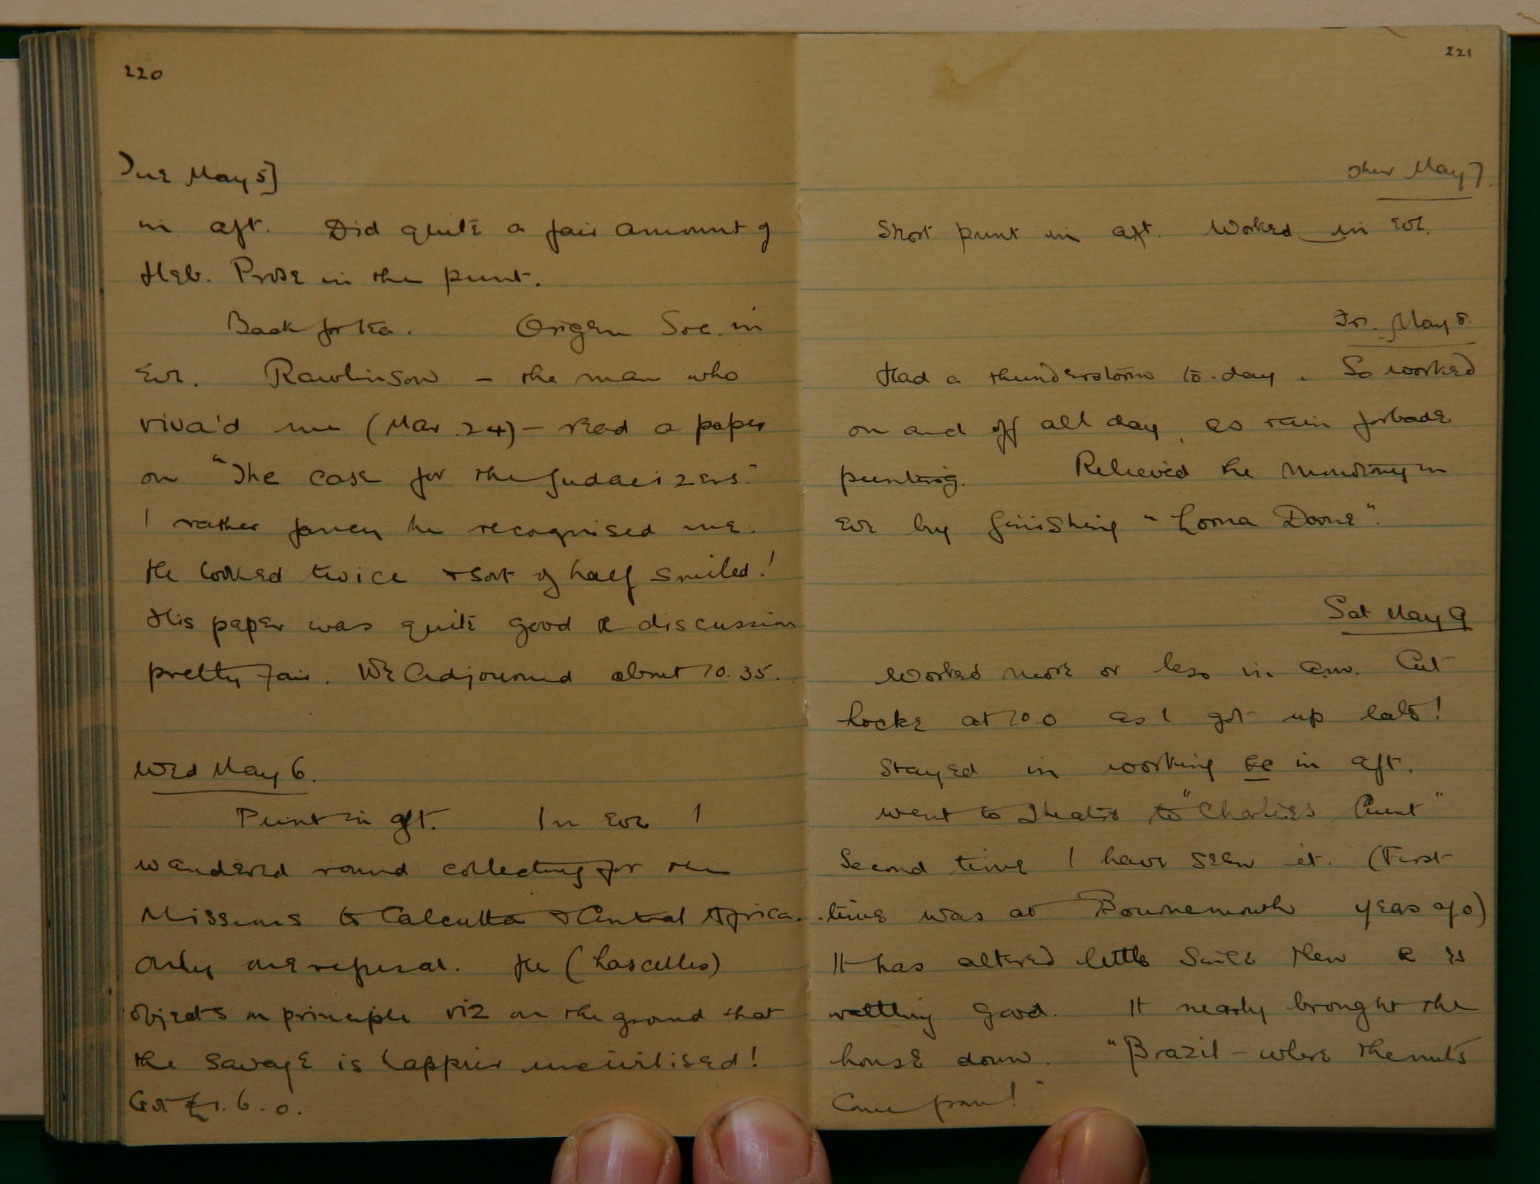 220
Tue May 5]
in aft. Did quite a fair amount of
Heb. Prose in the punt.
Back for tea. Origen Soc. in
Eve. Rawlinson – the man who
viva'd me (Mar. 24) – read a paper
on "The case for the Judaeizers."
I rather fancy he recognised me.
He looked twice & sort of half smiled!
His paper was quite good & discussion
pretty fair. We adjourned about 10.35.
Wed May 6.
Punt in aft. In eve I
wandered round collecting for the
Missions to Calcutta & Central Africa.
Only one refusal. He (Lascelles)
objects on principle viz on the ground that
the savage is happier uncivilised!
Got £1.6.0.
221
Thur May 7.
Short punt in aft. Worked in eve.
Fri. May 8.
Had a thunderstorm to-day. So worked
on and off all day, as rain forbade
punting. Relieved the monotony in
eve by finishing "Lorna Doone".
Sat May 9
Worked more or less in a.m. Cut
Locke at 10.0 as I got up late!
Stayed in working in aft.
Went to Theatre to "Charlie's Aunt"
Second time I have seen it. (First
time was at Bournemouth years ago)
It has altered little since then & is
rattling good. It nearly brought the
house down. "Brazil – where the nuts
come from!"